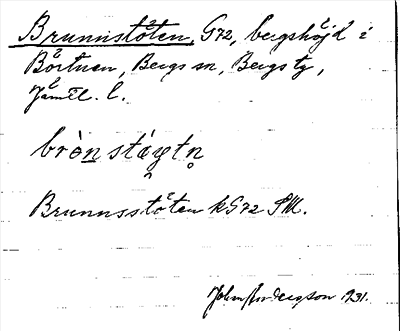 Brunnstöten, G72, bergshöjd i
Börtnen, Bergs sn, Bergs tg,
Jämtl. l.
bròn stá̱ytn̥
Brunnsstöten kG72 SM.
John Andersson 1931.